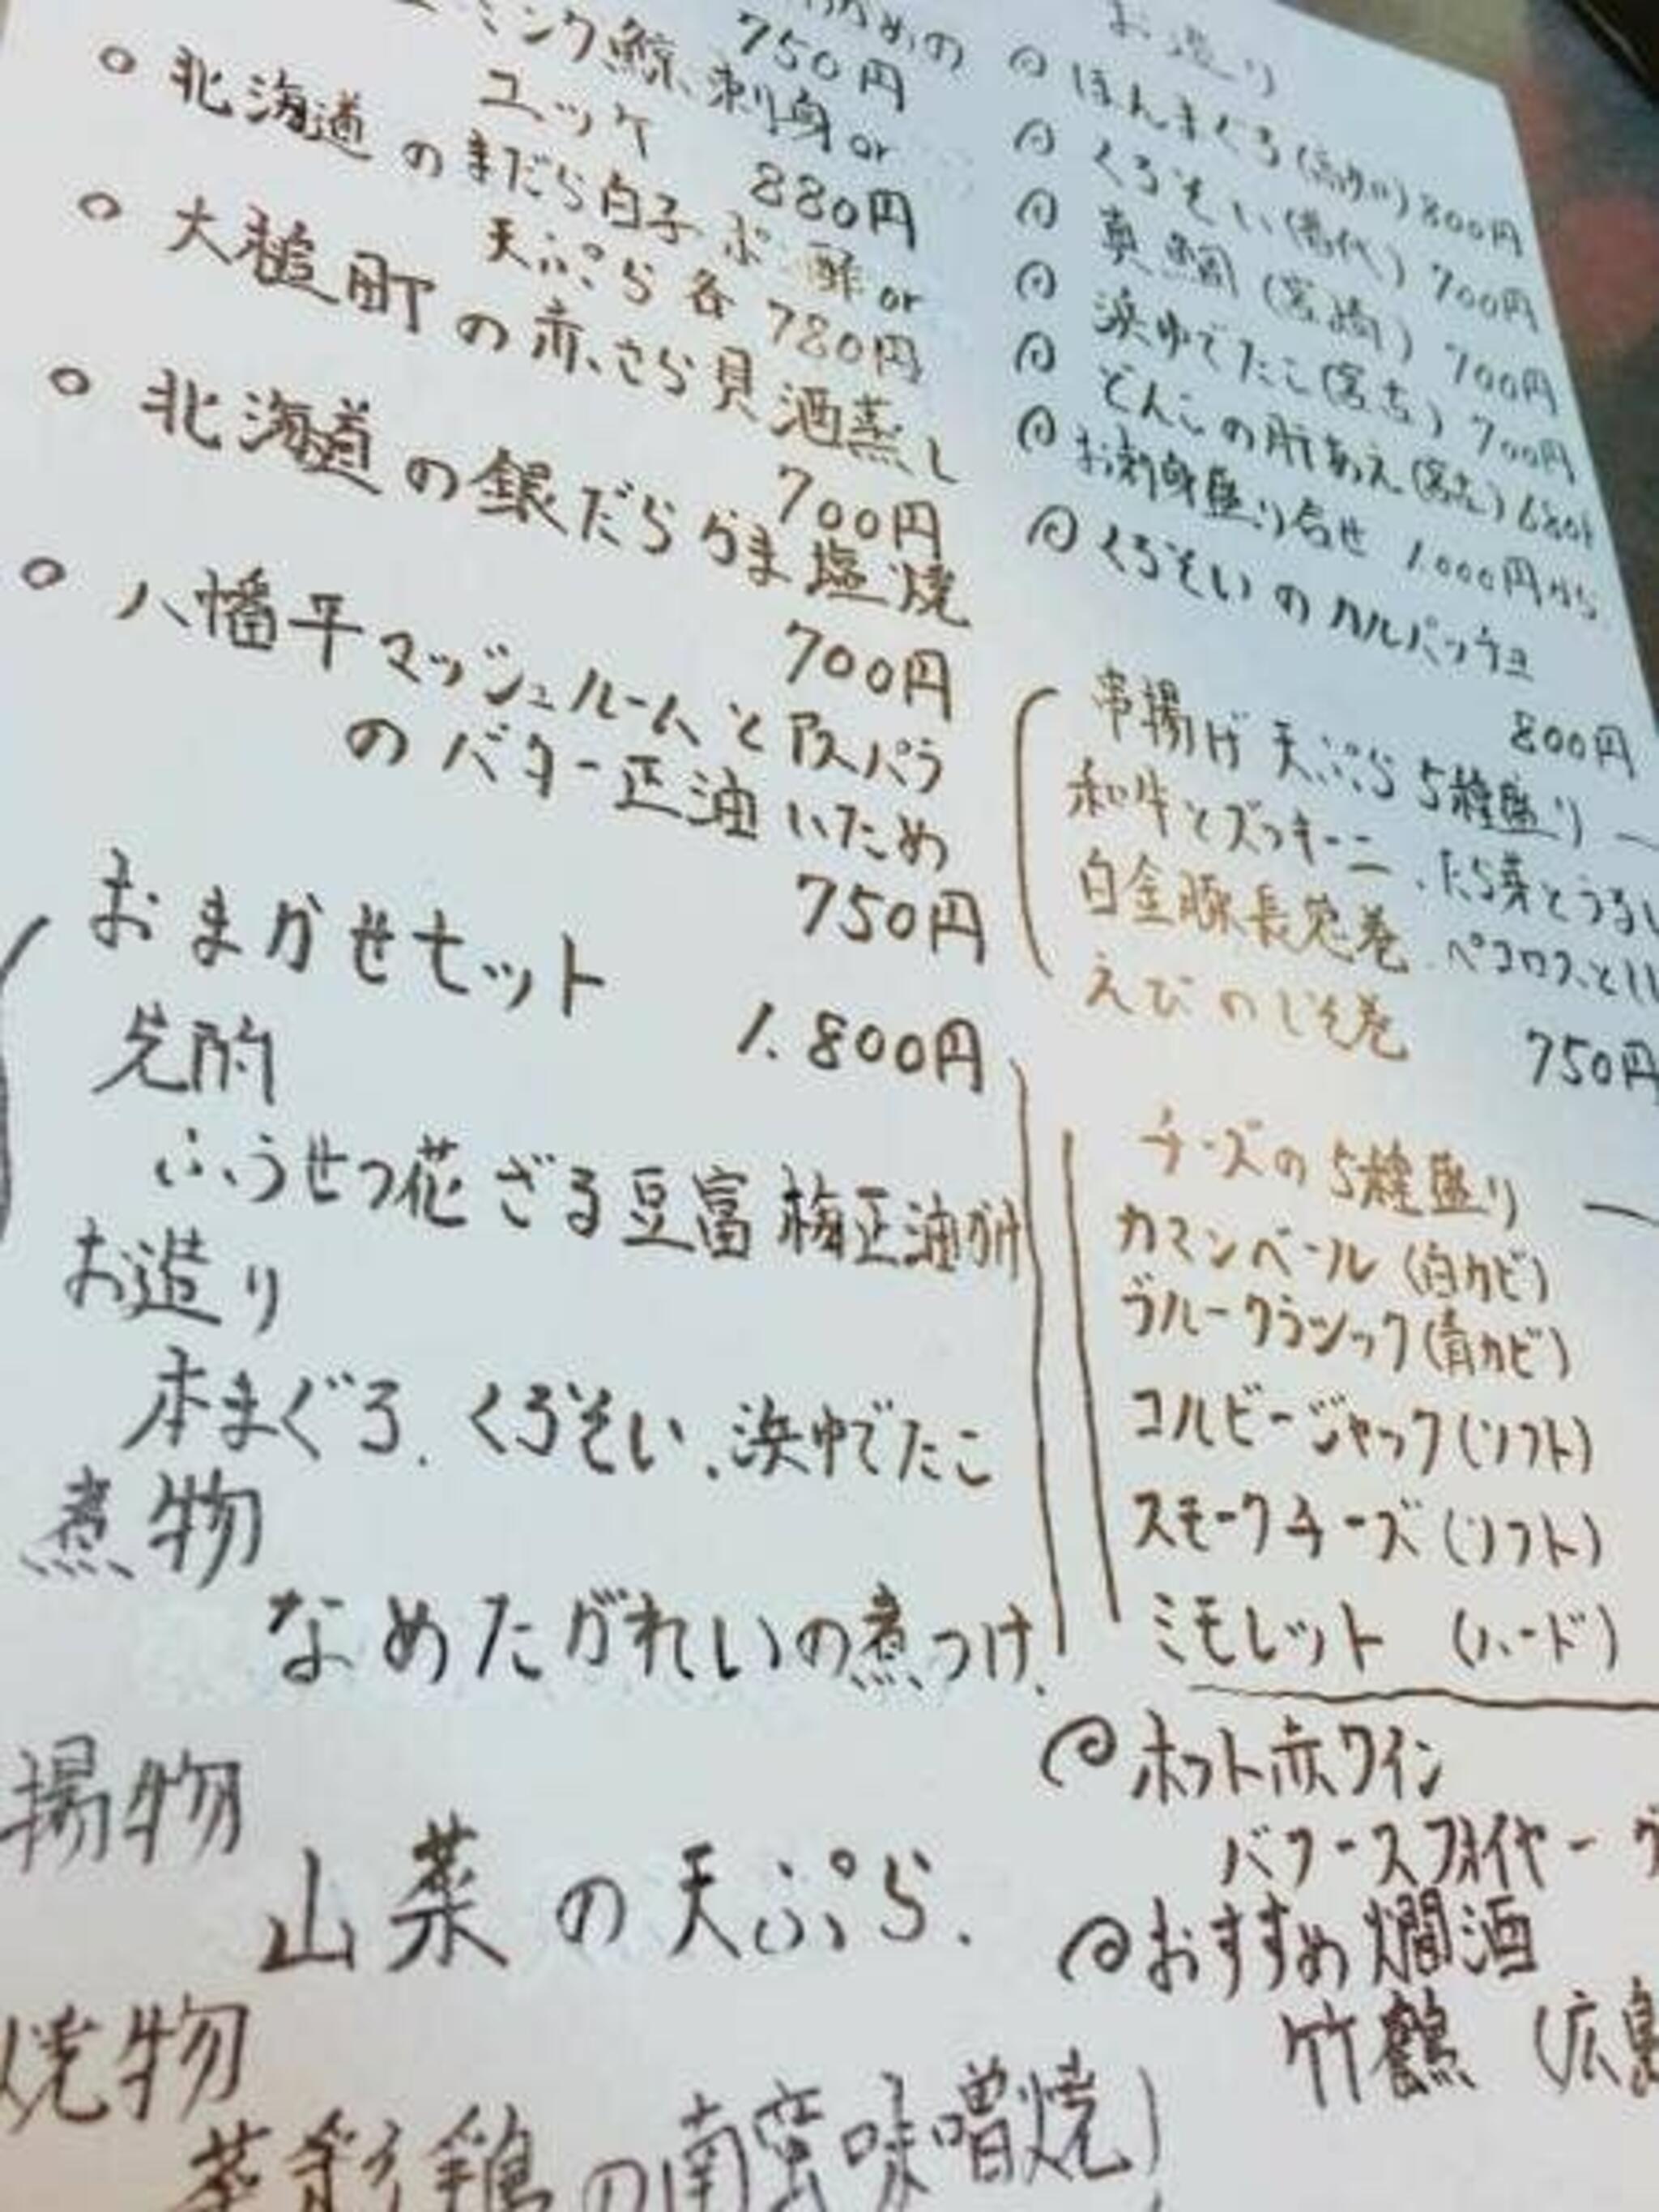 750円
ミンク鯨、刺身or
ユッケ
880円
○ 北海道のまだら白子ポン酢or
天ぷら各
780円
○ 大槌町の赤さら貝酒蒸し
700円
○ 北海道の銀だらかま塩焼
700円
○ 八幡平マッシュルームとアスパラ
のバター正油いため
750円
おまかせセット
1.800円
先酌
ふうせつ花ざる豆富梅正油がけ
お造り
本まぐろ.くろそい.浜ゆでたこ
煮物
なめたがれいの煮つけ.
揚物
山菜の天ぷら.
焼物
菜彩鶏の南蛮味噌焼
お造り
ほんまぐろ 800円
くろそい 700円
真鯛(宮崎) 700円
浜ゆでたこ(宮古) 700円
どんこの肝あえ(宮古)680
お刺身盛り合せ 1.000円から
くろそいのカルパッチョ
800円
串揚げ天ぷら5種盛り
和牛とズッキーニ.たら芽とうるい
白金豚長葱巻.ペコロスと
えびのじそ巻
750円
チーズの5種盛り
カマンベール(白カビ)
ブルークラシック(青カビ)
コルビージャック(ソフト)
スモークチーズ(ソフト)
ミモレット (ハード)
ホット赤ワイン
おすすめ燗酒
竹鶴 (広島